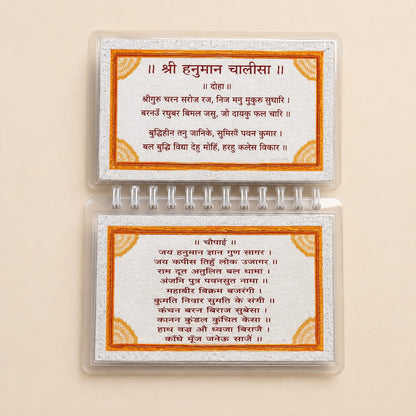 ॥ श्री हनुमान चालीसा ॥
॥ दोहा ॥
श्रीगुरु चरन सरोज रज, निज मनु मुकुरु सुधारि ।
बरनउँ रघुबर बिमल जसु, जो दायकु फल चारि ॥
बुद्धिहीन तनु जानिके, सुमिरौं पवन कुमार ।
बल बुद्धि विद्या देहु मोहिं, हरहु कलेस विकार ॥
॥ चौपाई ॥
जय हनुमान ज्ञान गुण सागर ।
जय कपीस तिहुँ लोक उजागर ॥
राम दूत अतुलित बल धामा ।
अंजनि पुत्र पवनसुत नामा ॥
महाबीर बिक्रम बजरंगी ।
कुमति निवार सुमति के संगी ॥
कंचन बरन बिराज सुबेसा ।
कानन कुंडल कुंचित केसा ॥
हाथ वज्र औ ध्वजा बिराजै ।
काँधे मूँज जनेऊ साजै ॥